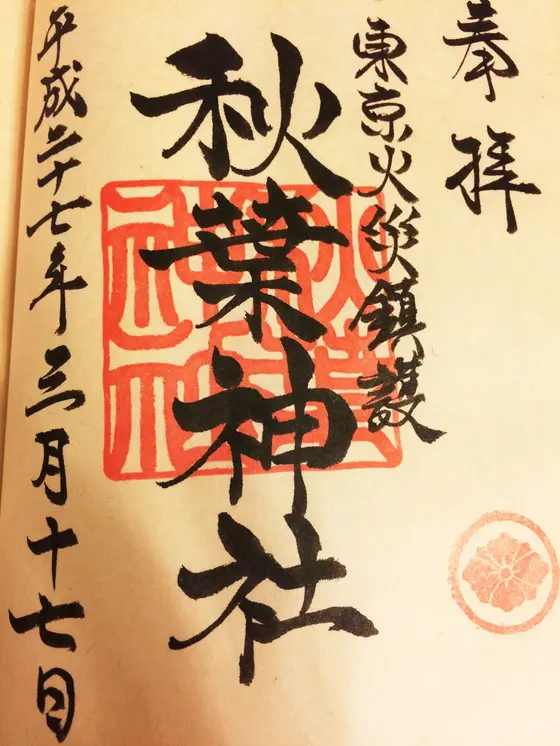 奉拝
東京火災鎮護
秋葉神社
平成二十七年三月十七日